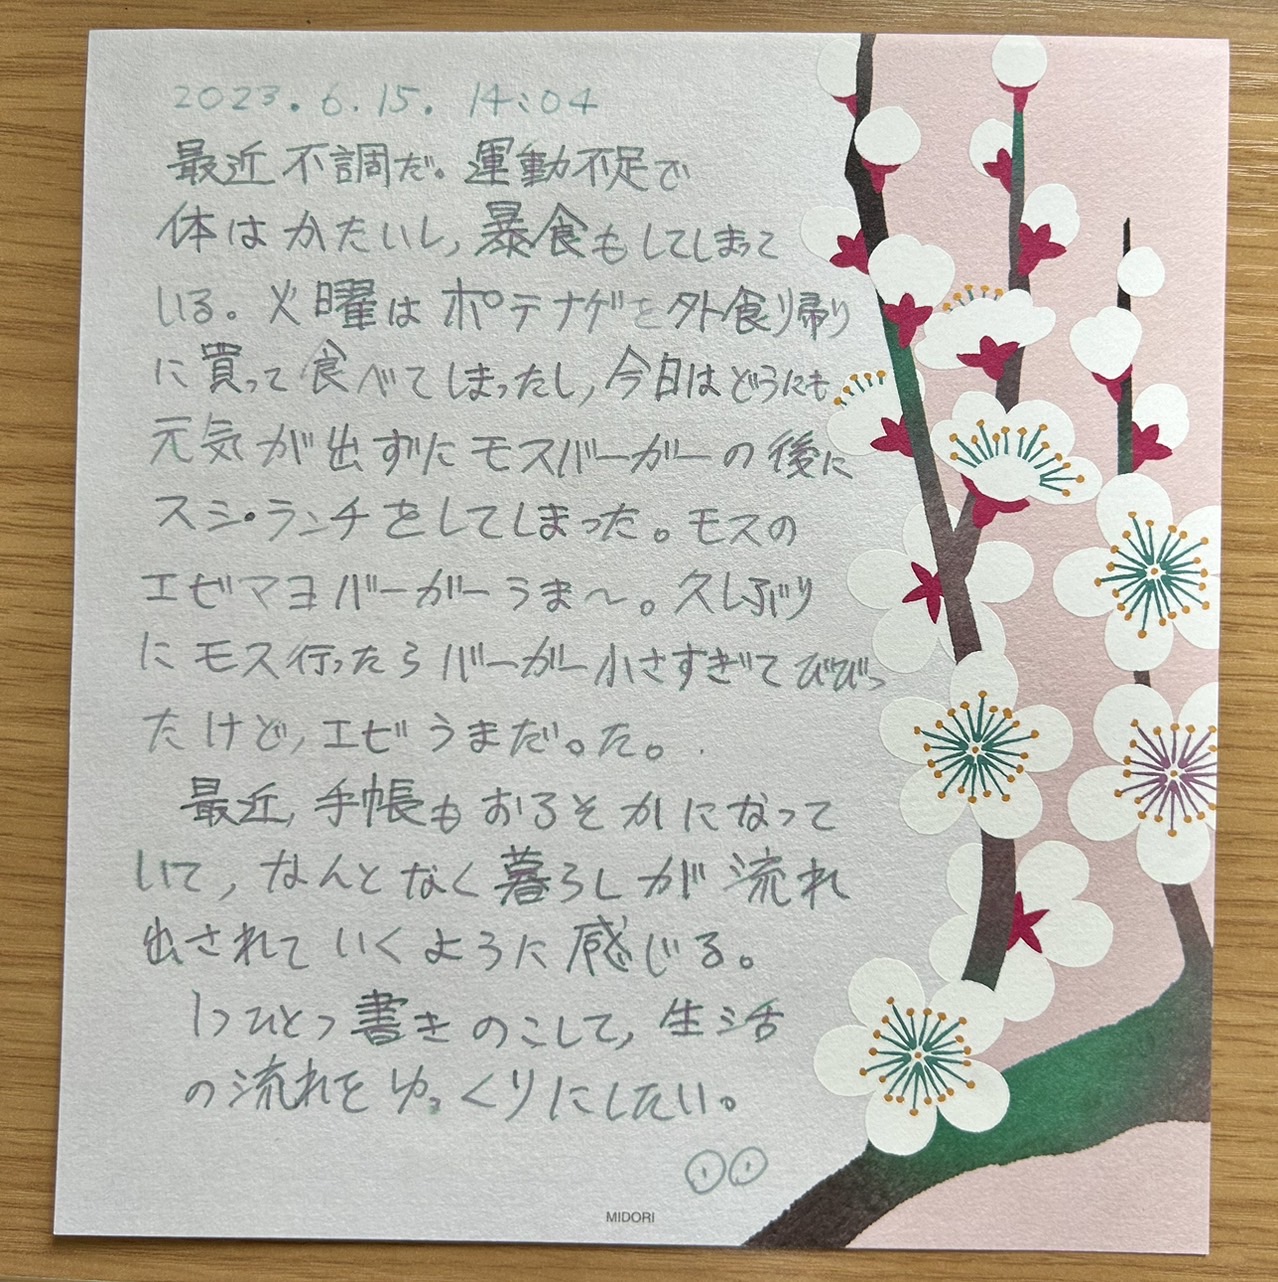 2023.6.15. 14:04
最近不調だ。運動不足で
体はかたいし,暴食もしてしまって
いる。火曜はポテナゲを外食り帰り
に買って食べてしまったし,今日はどうにも
元気が出ずにモスバーガーの後に
スシ・ランチをしてしまった。モスの
エビマヨバーガーうま〜。久しぶり
にモス行ったらバーガー小さすぎてびびっ
たけど,エビうまだ。た。
最近,手帳もおろそかになって
いて,なんとなく暮らしが流れ
出されていくように感じる。
1つひとつ書きのこして,生活
の流れをゆっくりにしたい。
MIDORI